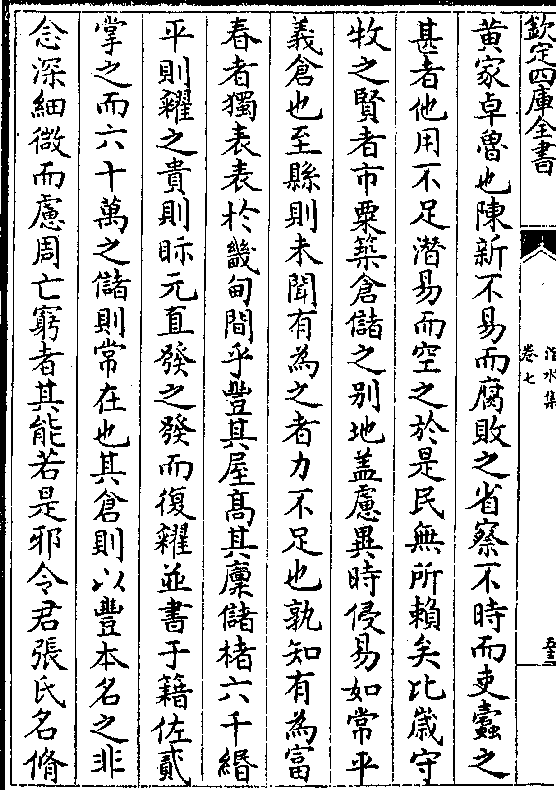 欽定四庫全書
洺水集
卷七
黄家卓魯也陳新不易而腐敗之省察不時而吏蠹之
甚者他用不足潛易而空之於是民無所賴矣比歳守
牧之賢者市粟築倉儲之别地盖慮異時侵易如常平
義倉也至縣則未聞有為之者力不足也孰知有為富
春者獨表表於畿甸間乎豐其屋髙其廪儲楮六千緡
平則糴之貴則眎元直發之發而復糴並書于籍佐貳
掌之而六十萬之儲則常在也其倉則以豐本名之非
念深細微而慮周亡窮者其能若是邪令君張氏名脩